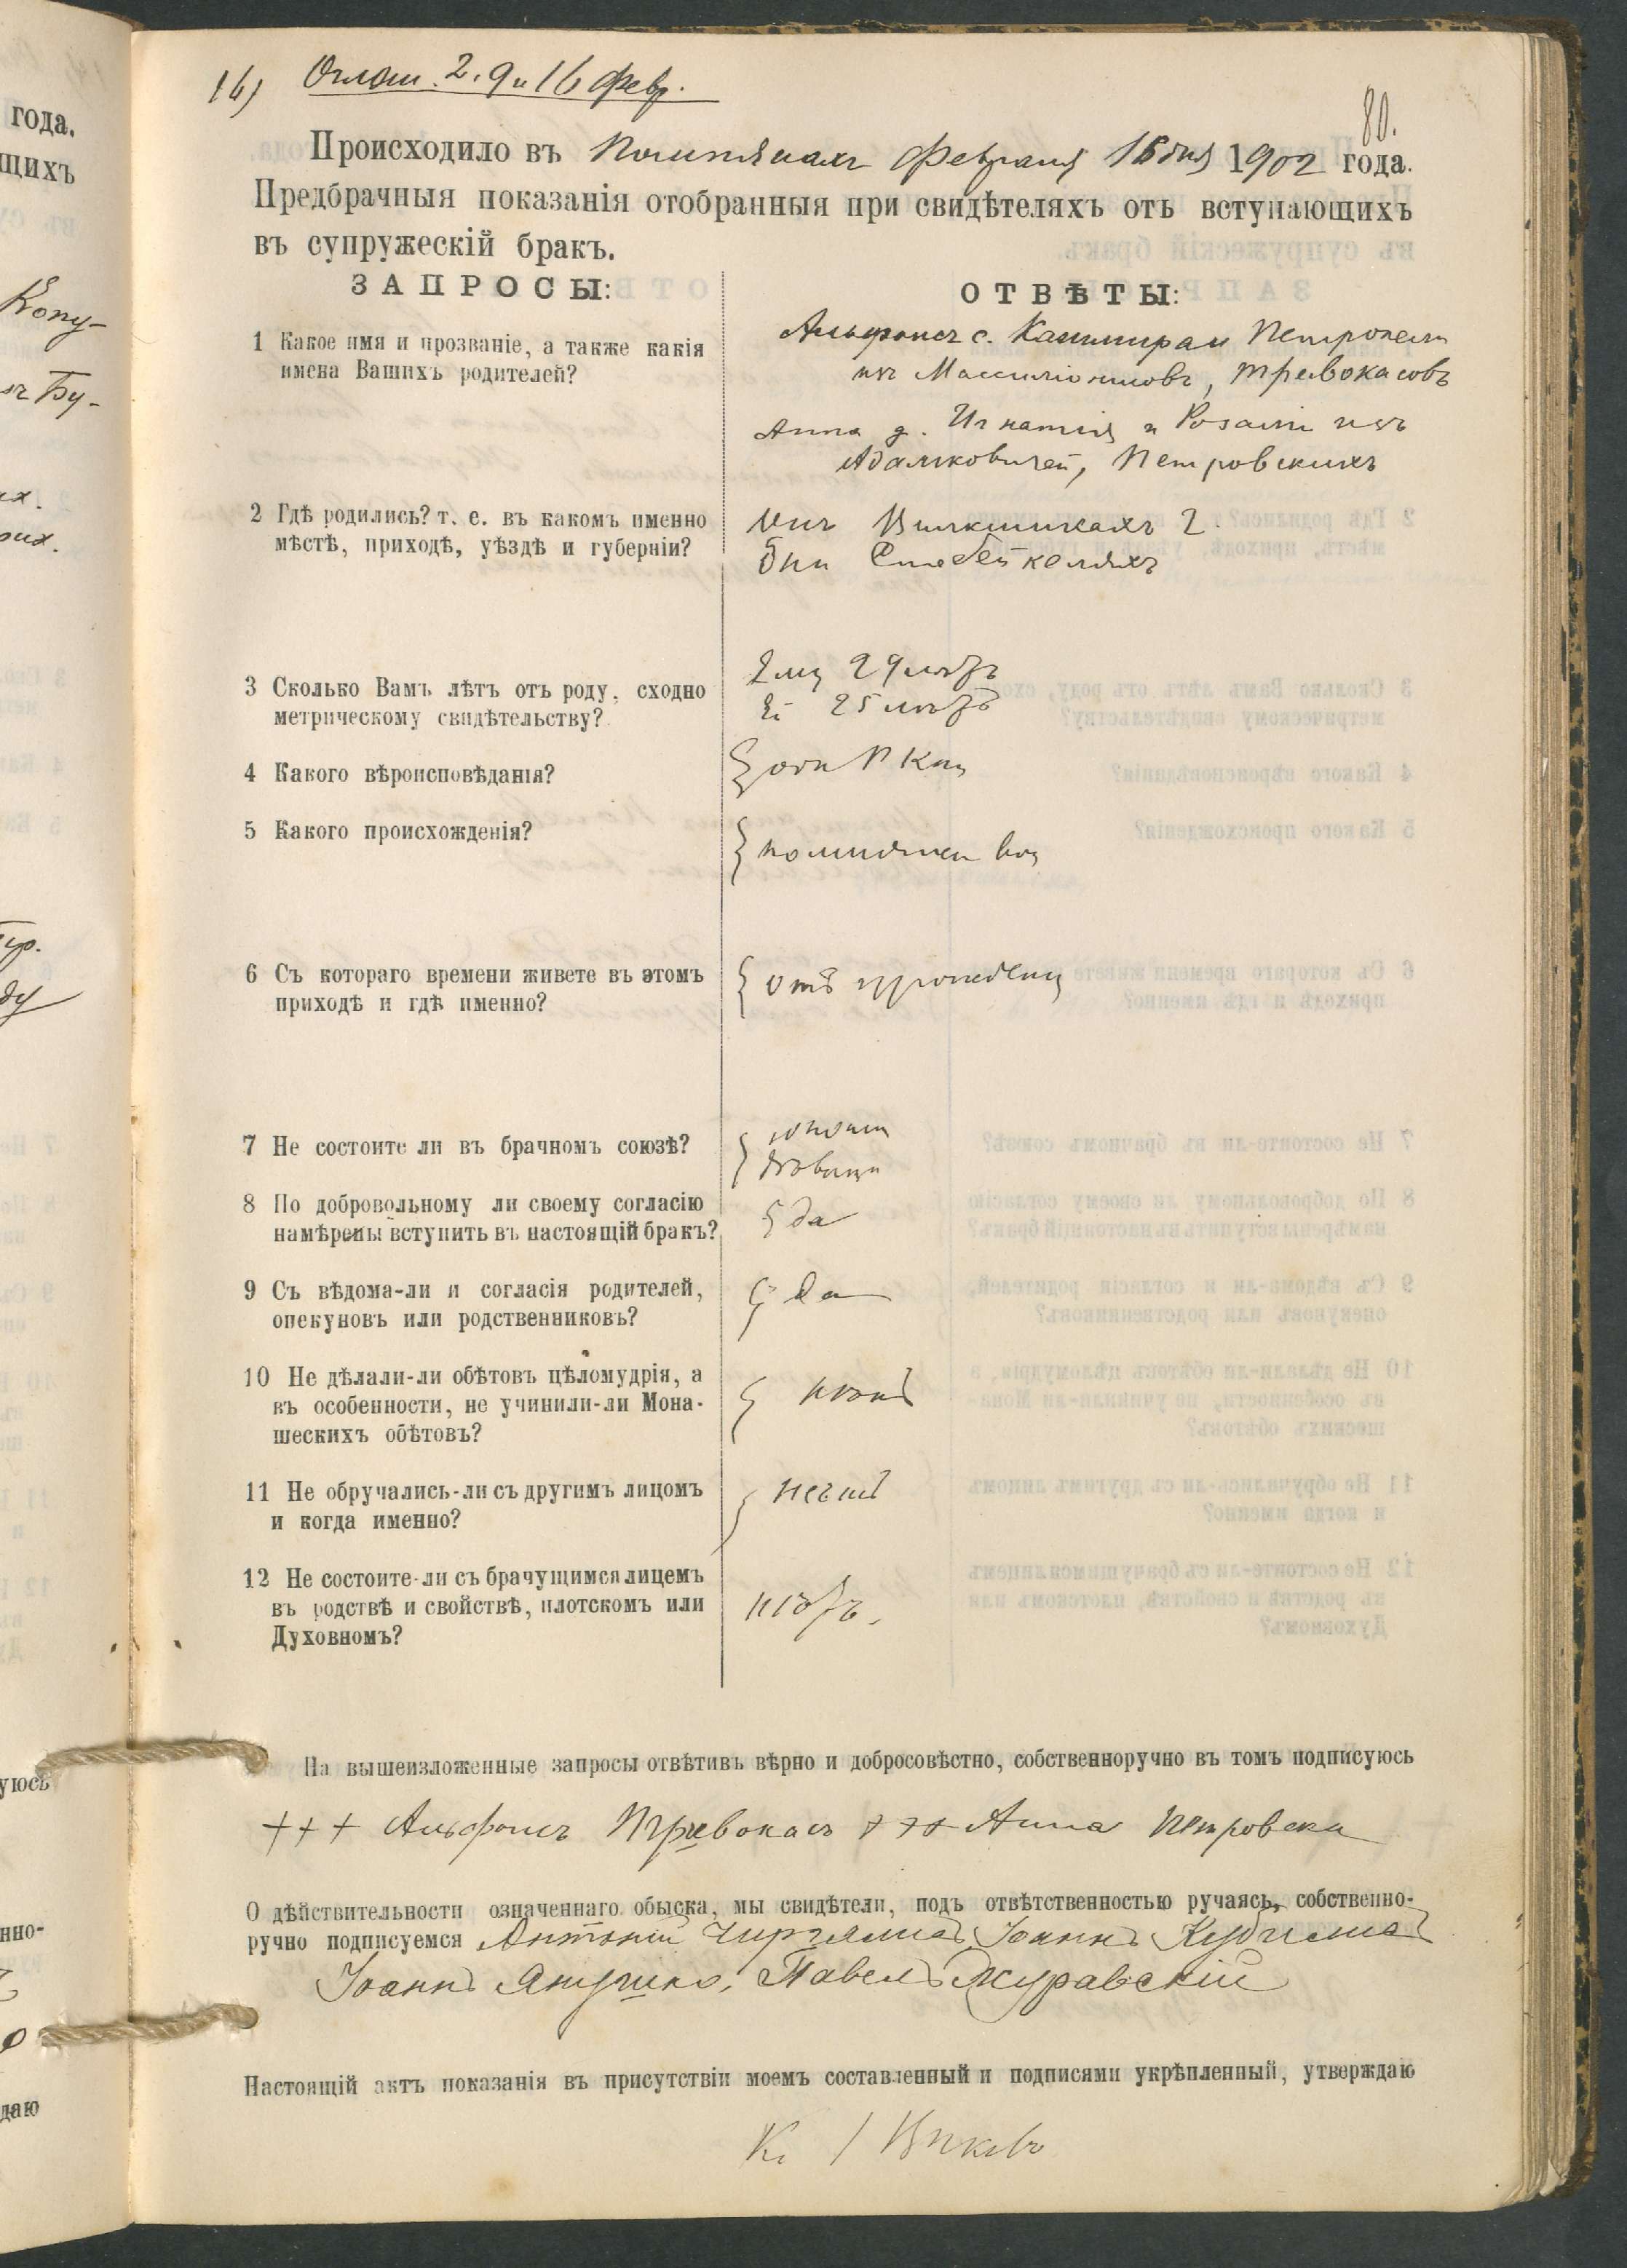 16) Оглаш. 2. 9 и 16 февр.
80.
Происходило въ февраля 16 дня 1902 года.
Предбрачныя показанія отобранныя при свидѣтеляхъ отъ вступающихъ
въ супружескій бракъ.
ЗАПРОСЫ:
ОТВѢТЫ:
1 Какое имя и прозваніе, а также какія
имена Вашихъ родителей?
Альфонсъ с. Казимира и Петронели
изъ , Тривокасовъ
Анна д. Игнатія и Розаліи изъ
Адамковичей, Петровскихъ
2 Гдѣ родились? т. е. въ какомъ именно
мѣстѣ, приходѣ, уѣздѣ и губерніи?
Онъ
Она
3 Сколько Вамъ лѣтъ отъ роду, сходно
метрическому свидѣтельству?
Ему 29 лѣтъ
Ей 25 лѣтъ
4 Какого вѣроисповѣданія?
оба Р К
5 Какого происхожденія?
6 Съ котораго времени живете въ этомъ
приходѣ и гдѣ именно?
Отъ урожденія
7 Не состоите ли въ брачномъ союзѣ?
юноша
дѣвица
8 По добровольному ли своему согласію
намѣрены вступить въ настоящій бракъ?
да
9 Съ вѣдома-ли и согласія родителей,
опекуновъ или родственниковъ?
да
10 Не дѣлали-ли обѣтовъ цѣломудрія, а
въ особенности, не учинили-ли Мона-
шескихъ обѣтовъ?
нѣтъ
11 Не обручались-ли съ другимъ лицомъ
и когда именно?
нѣтъ
12 Не состоите-ли съ брачущимся лицемъ
въ родствѣ и свойствѣ, плотскомъ или
Духовномъ?
нѣтъ.
На вышеизложенные запросы отвѣтивъ вѣрно и добросовѣстно, собственноручно въ томъ подписуюсь
+++ Альфонсъ Тривокасъ +++ Анна Петровска
О дѣйствительности означеннаго обыска, мы свидѣтели, подъ отвѣтственностью ручаясь, собственно-
ручно подписуемся Антоній Іоаннъ
Іоаннъ Янушко, Павелъ Журавскій
Настоящій актъ показанія въ присутствіи моемъ составленный и подписями укрѣпленный, утверждаю